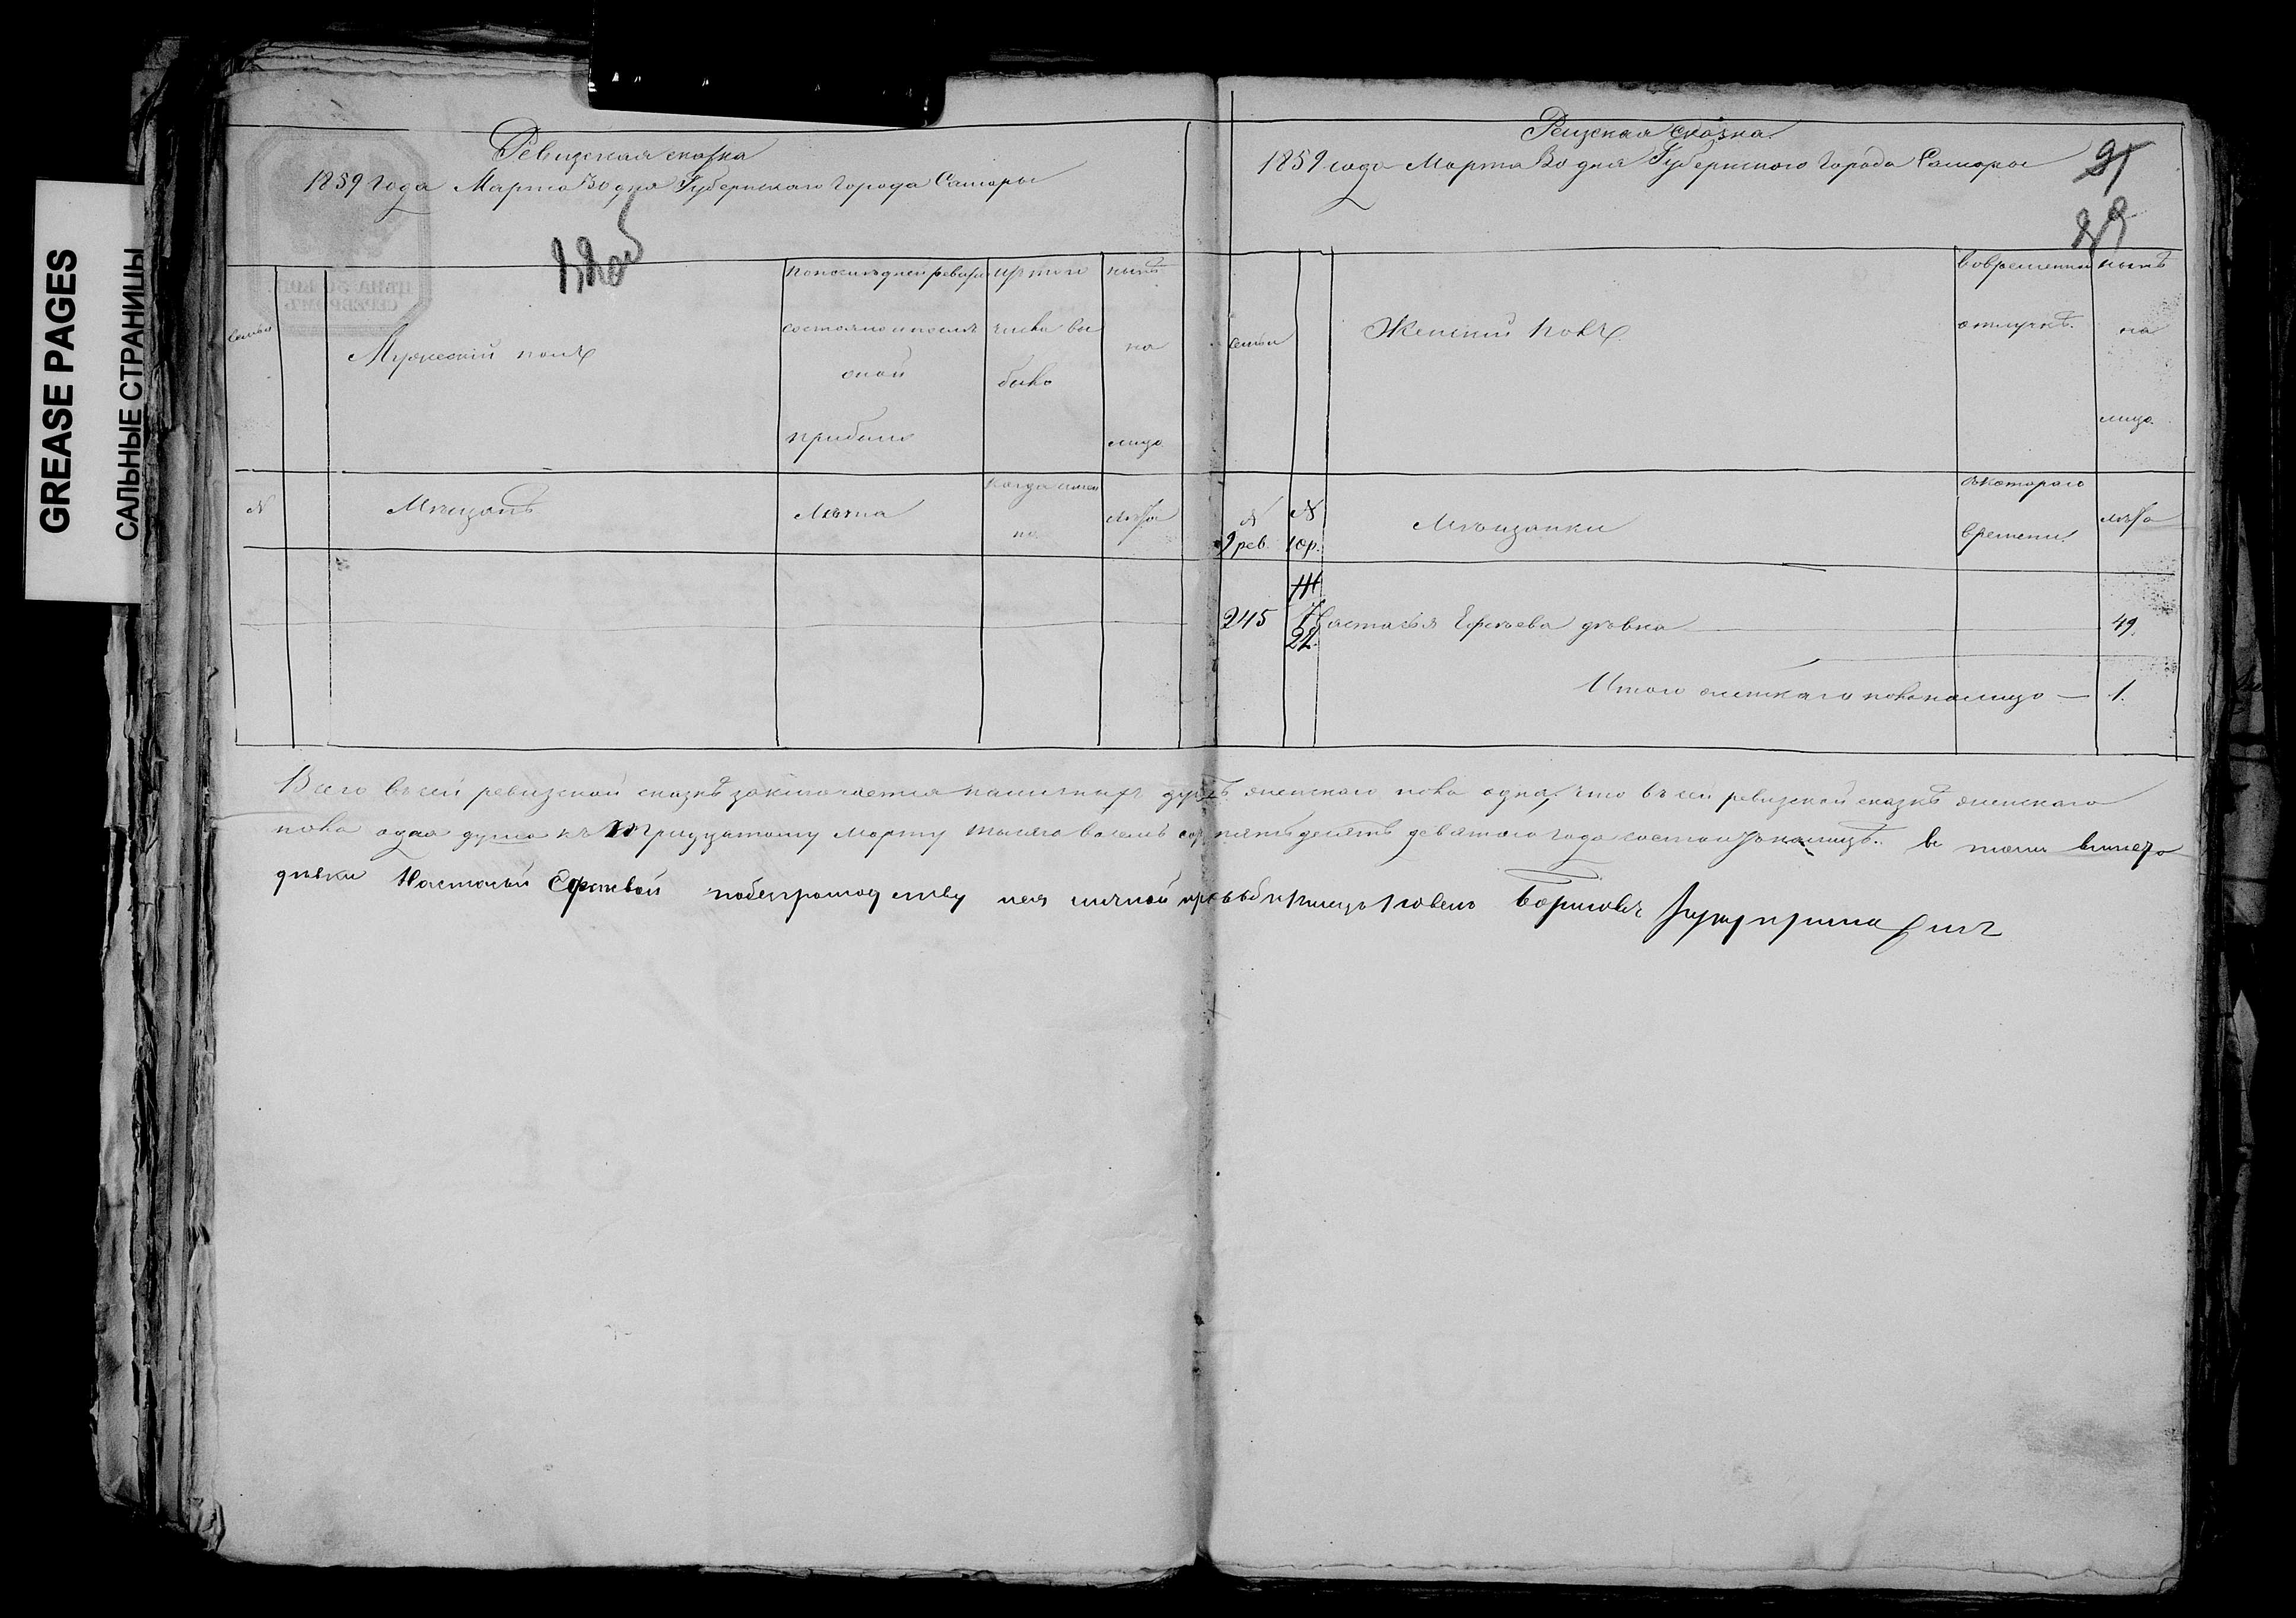 GREASE PAGES
САЛЬНЫЕ СТРАНИЦЫ
Ревизская сказка
1859 Года Марта 30 дня Губернскаго Города Самары
семьи
Мужеский полъ
по последней ревизіи
состояло и после
оной
прибыло
изъ того
числа вы
было
ныне
на
лицо
N
Мещане
Лета
Когда имен
но
лета
Ревизская сказка
1859 года Марта 30 дня Губернского Города Самары
семьи
Женский полъ
во временной
отлучке
ныне
на
лицо
N
9 рев.
N
10 р.
Мещанки
съ котораго
времени
лета
245
22
Настасья Ефимьева девка
49.
Итого женскаго пола налицо — 1.
Всего въ сей ревизской сказке заключается наличныхъ душъ женскаго пола одна, что въ сей ревизской сказке женскаго
пола одна душа къ тридцатому марту тысяча восемь сот пятьдесятъ девятого года состоит налицо. в томъ вместо
девки Настасьи Ефимьевой по безграмотству ея личной просьбе мещанинъ Борисовъ руку приложилъ